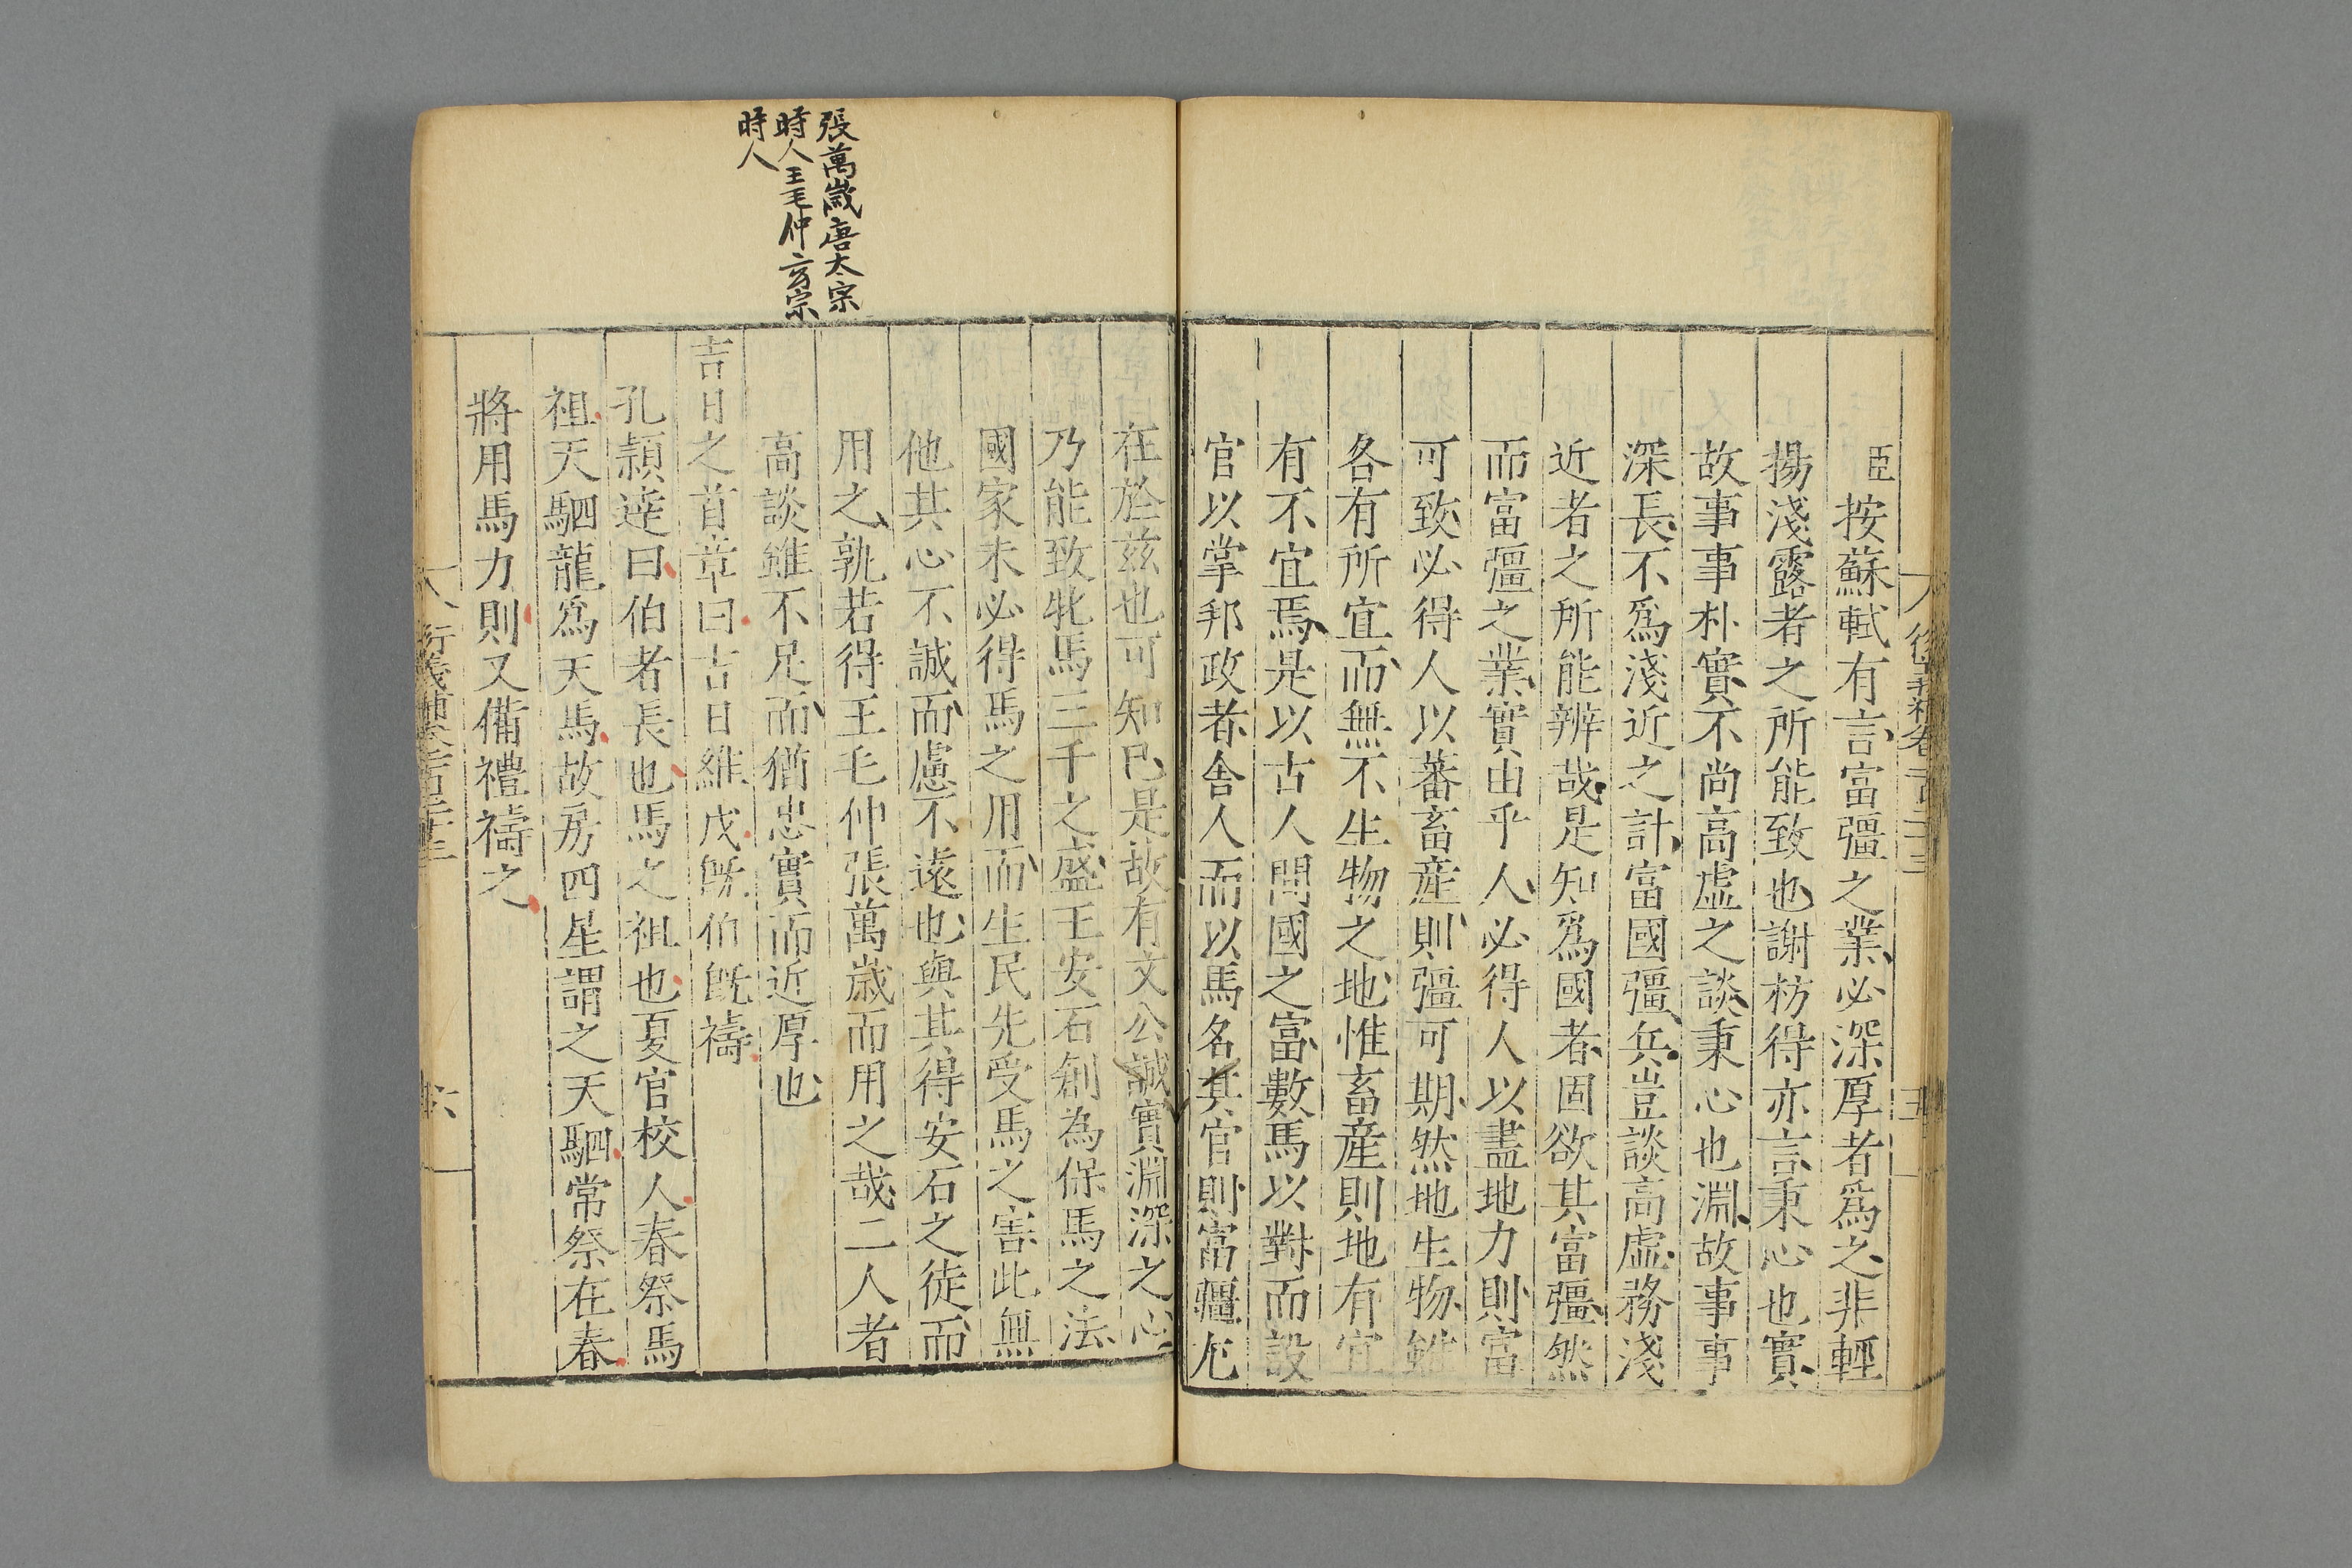 臣按蘇軾有言富彊之業必深厚者爲之非輕
揚淺露者之所能致也謝枋得亦言秉心也實
故事事朴實不尚高虛之談秉心也淵故事事
深長不爲淺近之計富國彊兵豈談高虛務淺
近者之所能辨哉是知爲國者固欲其富彊然
而富彊之業實由乎人必得人以盡地力則富
可致必得人以蕃畜産則彊可期然地生物雖
各有所宜而無不生物之地惟畜産則地有宜
有不宜焉是以古人問國之富數馬以對而設
官以掌邦政者舍人而以馬名其官則富彊尤
在於兹也可知已是故有文公誠實淵深之心
乃能致牝馬三千之盛王安石創為保馬之法
國家未必得馬之用而生民先受馬之害此無
他其心不誠而慮不遠也與其得安石之徒而
用之孰若得王毛仲張萬歲而用之哉二人者
高談雖不足而猶忠實而近厚也
吉日之首章曰吉日維戊旣伯旣禱
孔頴逹曰伯者長也馬之祖也夏官校人春祭馬
祖天駟龍爲天馬故房四星謂之天駟常祭在春
將用馬力則又備禮禱之
張萬歲唐太宗
時人王毛仲玄宗
時人
五
六